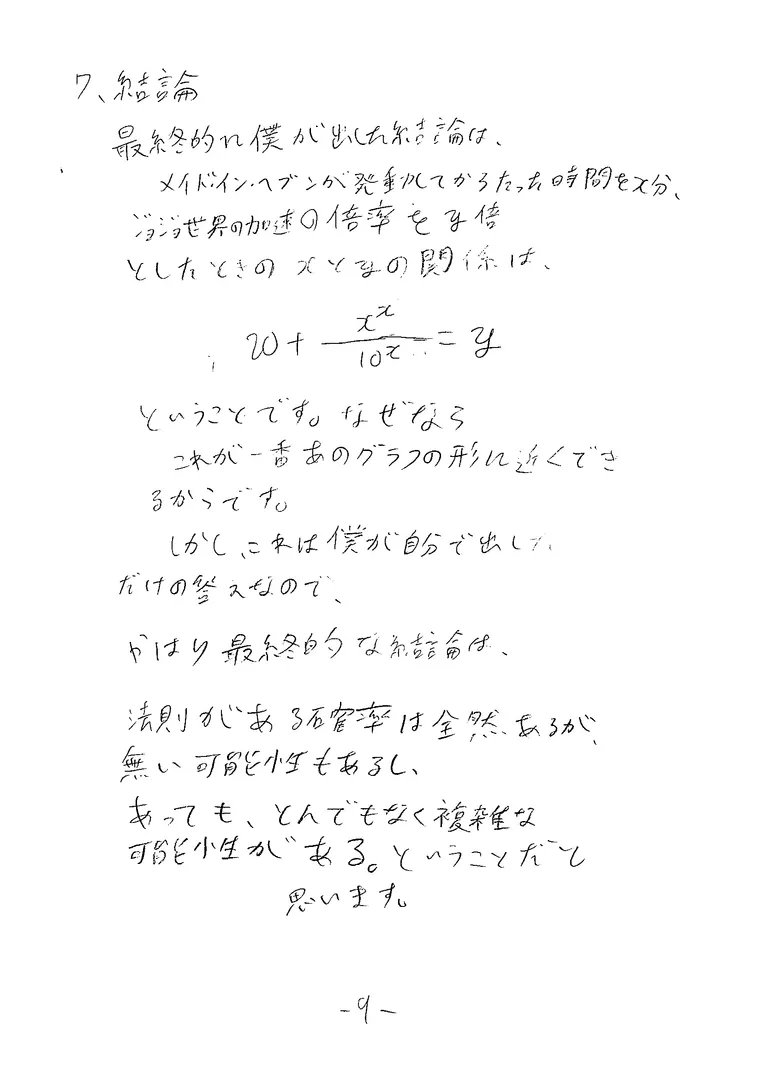 7、結論
最終的に僕が出した結論は、
メイド・イン・ヘブンが発動してからたった時間をx分、
ジョジョ世界の加速の倍率をy倍
としたときのxとyの関係は、
20+ x^x/10^x = y
ということです。なぜなら
これが一番あのグラフの形に近くでき
るからです。
しかし、これは僕が自分で出した
だけの答えなので、
やはり最終的な結論は、
法則がある確率は全然あるが、
無い可能性もあるし、
あっても、とんでもなく複雑な
可能性がある。ということだと
思います。
-9-